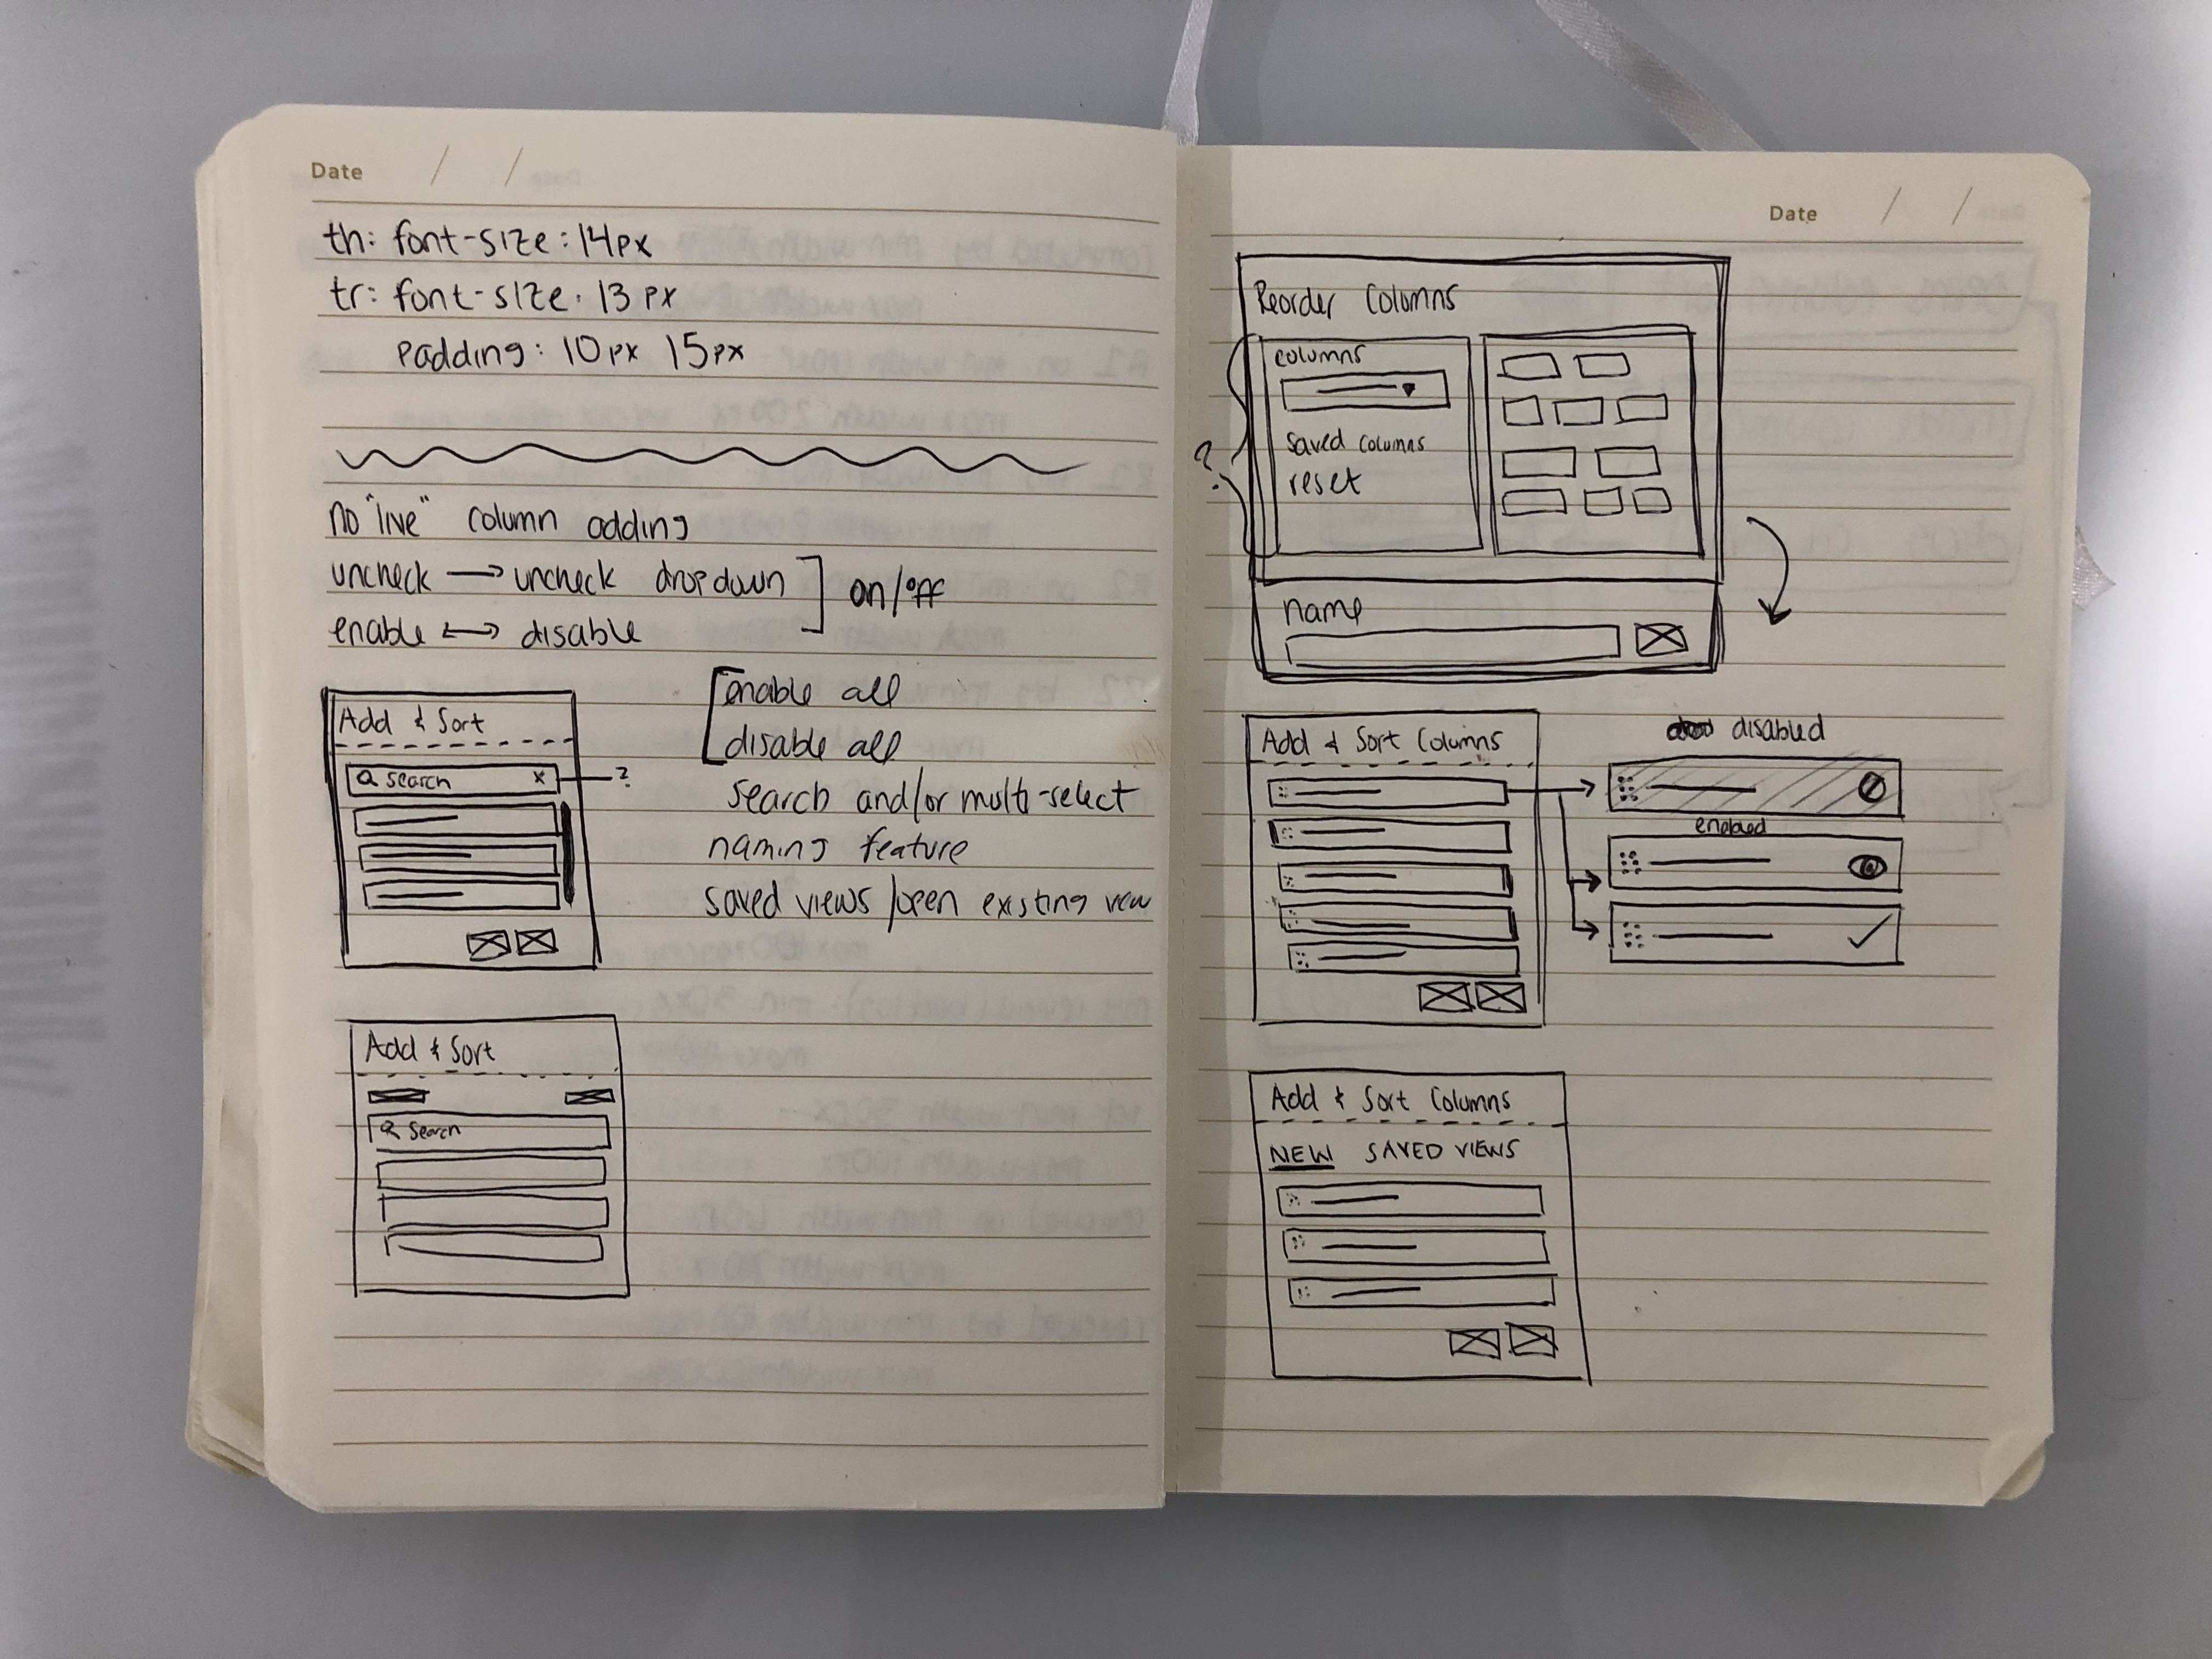 Date / /
th: font-size: 14px
tr: font-size: 13px
padding: 10px 15px
no "live" column adding
uncheck → uncheck dropdown ] on/off
enable ↔ disable
[enable all
disable all
search and/or multi-select
naming feature
saved views/open existing view
Add & Sort
Search x ?
Add & Sort
Search
Date / /
Reorder Columns
columns
saved columns
reset
?
name
Add & Sort Columns
disabled
enabled
Add & Sort Columns
NEW SAVED VIEWS